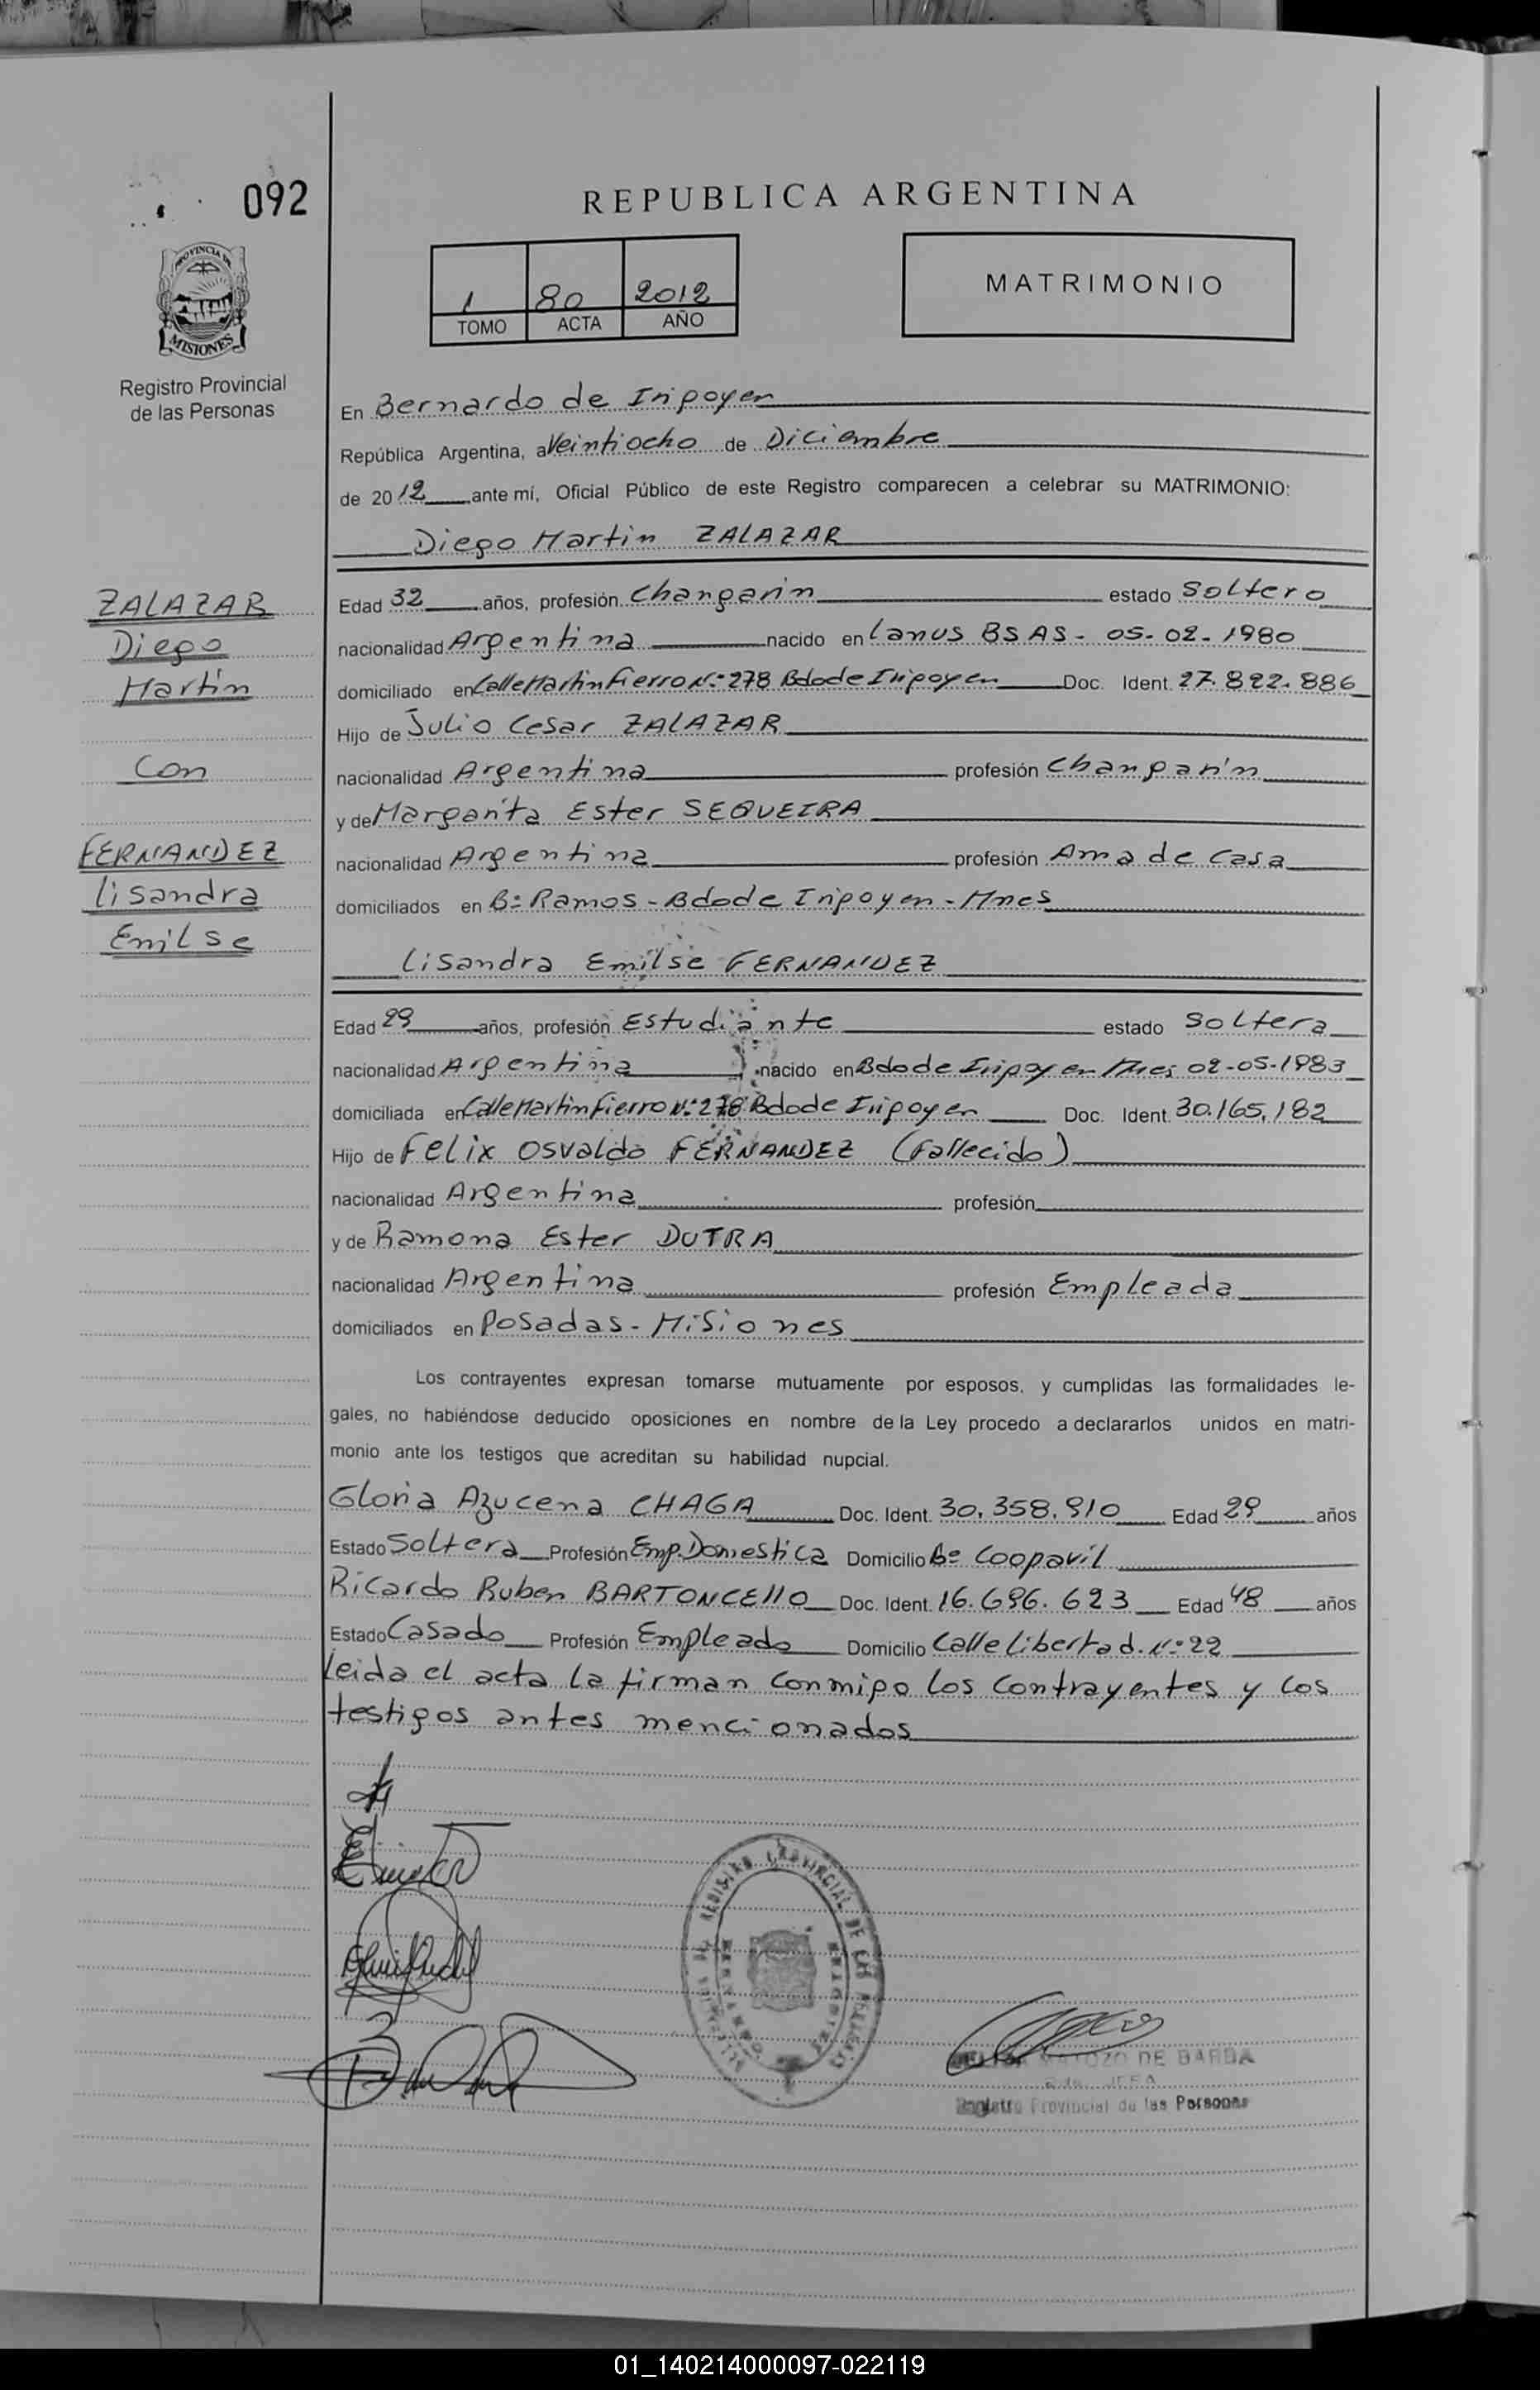 092
REPUBLICA ARGENTINA
PROVINCIA DE
MISIONES
Registro Provincial
de las Personas
1 80 2012
TOMO ACTA AÑO
MATRIMONIO
En Bernardo de Irigoyen
República Argentina, a Veintiocho de Diciembre
de 2012 ante mí, Oficial Público de este Registro comparecen a celebrar su MATRIMONIO:
Diego Martin ZALAZAR
ZALAZAR
Diego
Martín
Con
FERNANDEZ
Lisandra
Emilse
Edad 32 años, profesión Changarín estado Soltero
nacionalidad Argentina nacido en Lanus BS AS - 05-02-1980
domiciliado en Calle Martin Fierro N:° 278 Bdo de Irigoyen Doc. Ident. 27.822.886
Hijo de Julio Cesar ZALAZAR
nacionalidad Argentina profesión Changarín
y de Margarita Ester SEQUEIRA
nacionalidad Argentina profesión Ama de Casa
domiciliados en B:° Ramos - Bdo de Irigoyen - Mnes
Lisandra Emilse FERNANDEZ
Edad 29 años, profesión Estudiante estado Soltera
nacionalidad Argentina nacido en Bdo de Irigoyen Mnes 02-05-1983
domiciliada en Calle Martin Fierro N:° 278 Bdo de Irigoyen Doc. Ident. 30.165.182
Hijo de Felix Osvaldo FERNANDEZ (Fallecido)
nacionalidad Argentina profesión
y de Ramona Ester DUTRA
nacionalidad Argentina profesión Empleada
domiciliados en Posadas - Misiones
Los contrayentes expresan tomarse mutuamente por esposos, y cumplidas las formalidades le-
gales, no habiéndose deducido oposiciones en nombre de la Ley procedo a declararlos unidos en matri-
monio ante los testigos que acreditan su habilidad nupcial.
Gloria Azucena CHAGA Doc. Ident. 30.358.910 Edad 29 años
Estado Soltera Profesión Emp. Domestica Domicilio B° Coopavil
Ricardo Ruben BARTONCELLO Doc. Ident. 16.696.623 Edad 48 años
Estado Casado Profesión Empleado Domicilio Calle Libertad N:° 22
Leida el acta la firman conmigo los contrayentes y los
testigos antes mencionados
REGISTRO PROVINCIAL DE LAS
MATOZO DE BARBA
JEFA
Registro Provincial de las Personas
01_140214000097-022119